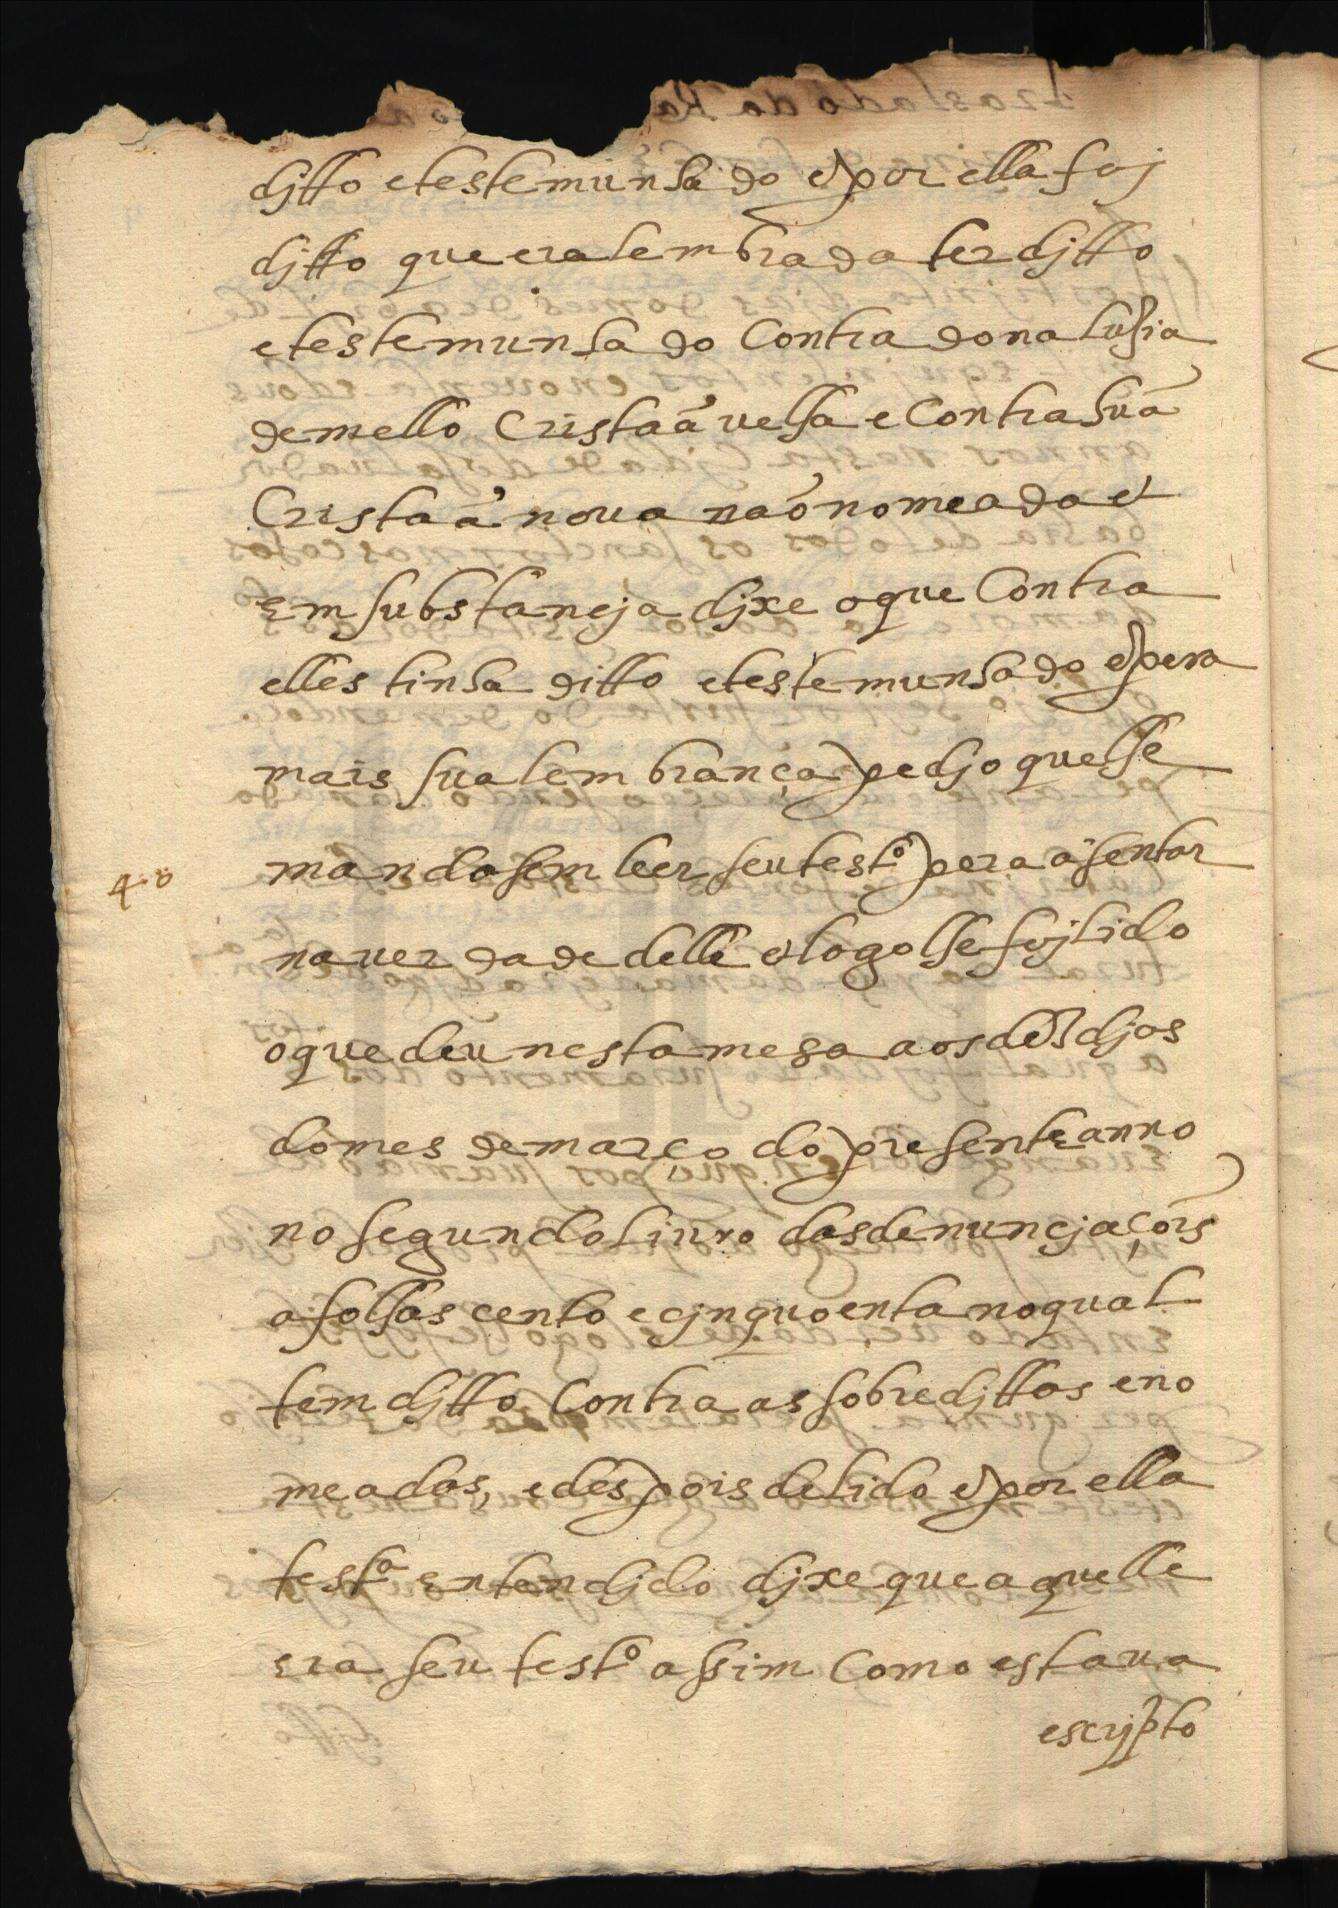 djtto e testemunhado e por ella foj
djtto que era lembrada ter djtto
e testemunhado Contra dona luzia
de mello Cristaã velha e Contra huã
Cristaã nova naõ nomeada e
em substancja djxe o que Contra
elles tinha ditto e testemunhado e pera
mais sua lembrança pedjo que lhe
mandasem leer seu test.º pera asentar
na verdade delle e logo lhe foj lido
4.º
o que deu nesta mesa aos des djas
do mes de março do presente anno
no segundo livro das denuncjaçoĩs
a folhas cento e cjnquoenta no qual
tem djtto Contra as sobredjttas e no
meadas, e despois de lido e por ella
test.ª entendjdo djxe que aquelle
era seu test.º assim Como estava
escrjpto